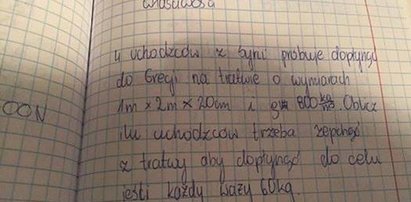 właściwości
4 uchodźców z Syrii próbuje dopłynąć
do Grecji na tratwie o wymiarach
OON
1m x 2m x 20cm i g= 800 kg/m3. Oblicz
ilu uchodźców trzeba zepchąć
z tratwy aby dopłynąć do celu
jeśli każdy waży 60kg.